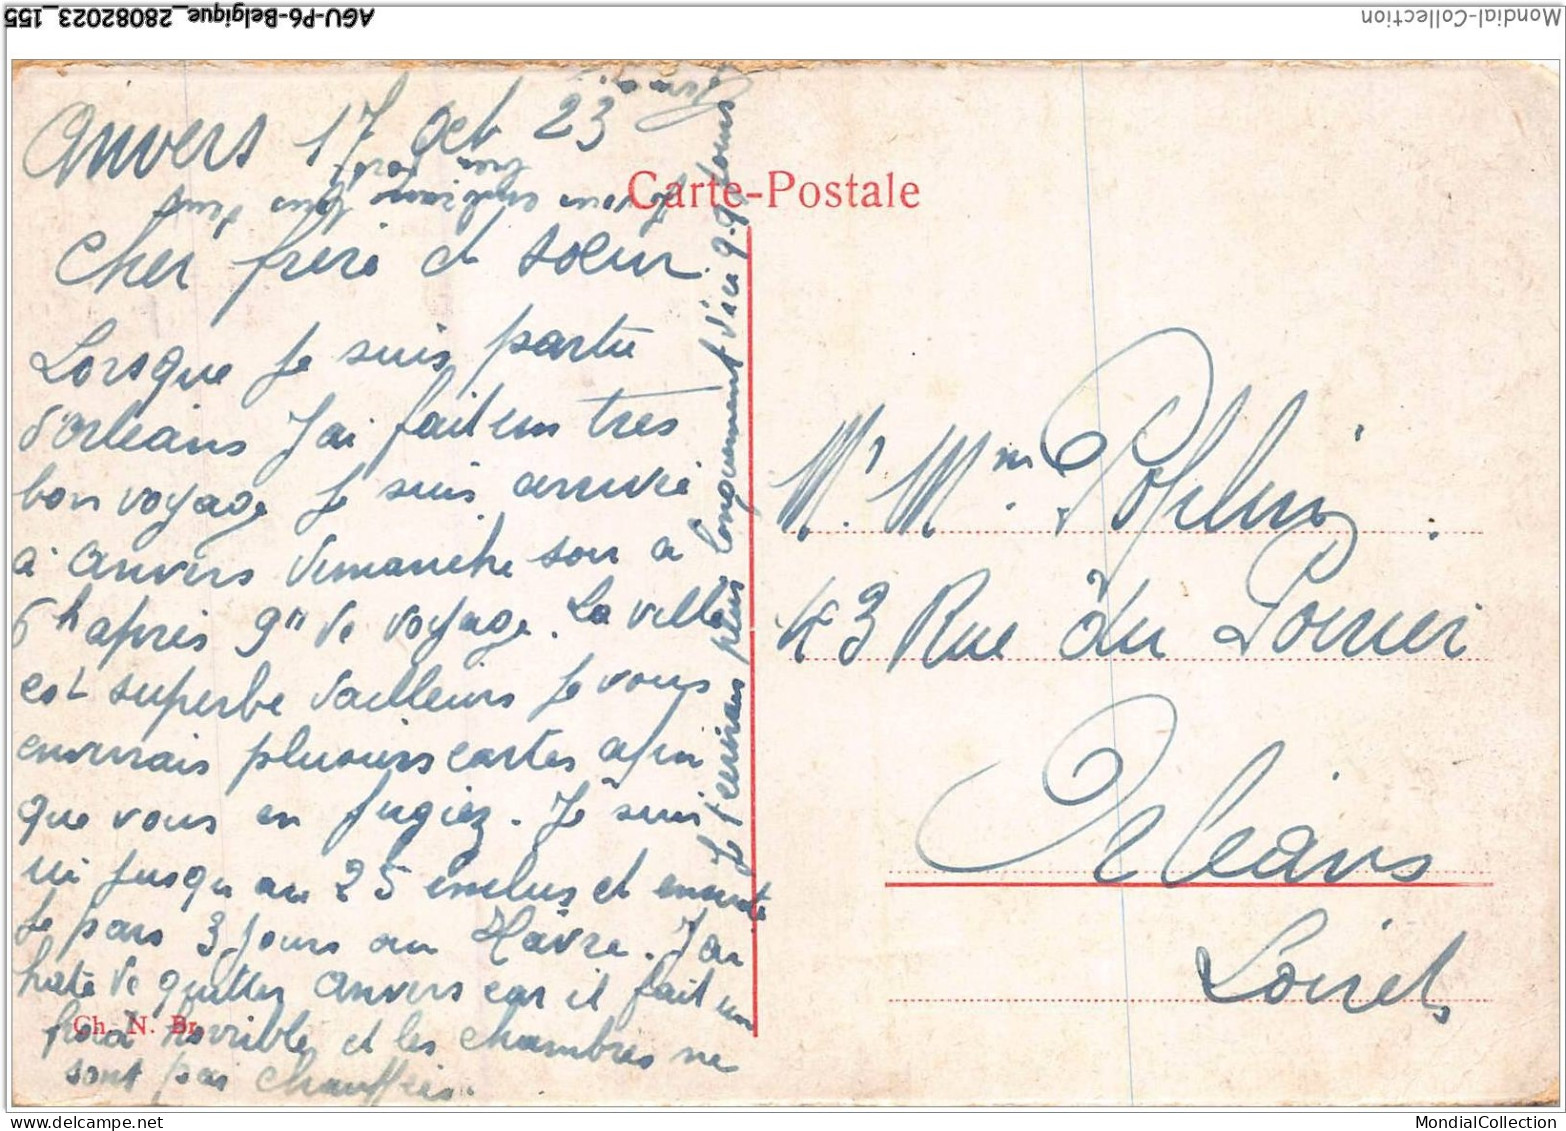 AGU-P6-Belgique_28082023_155
Mondial-Collection
Carte-Postale
Anvers 17 oct 23
Cher frère et sœur
Lorsque je suis partu
d'orléans J'ai fait un très
bon voyage je suis arrivé
à anvers dimanche soir a
6h après 9h de voyage. La ville
est superbe d'ailleurs je vous
enverrais plusieurs cartes afin
que vous en jugiez. Je suis
ici jusqu au 25 inclus et ensuite
je pars 3 jours au Hâvre. J'ai
hate de quitter anvers car il fait un
froid horrible et les chambres ne
sont pas chauffées.
Je t'ecrirais plus longuement d'ici 9.9 jours
Mr Mme Poplin
43 Rue du Poirier
Orléans
Loiret
Ch. N. Br.
MondialCollection
delcampe.net